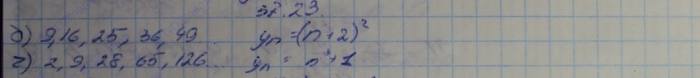 37.23.
б) 9,16, 25, 36, 49... yn=(n+2)²
г) 2, 9, 28, 65, 126... yn = n³+1